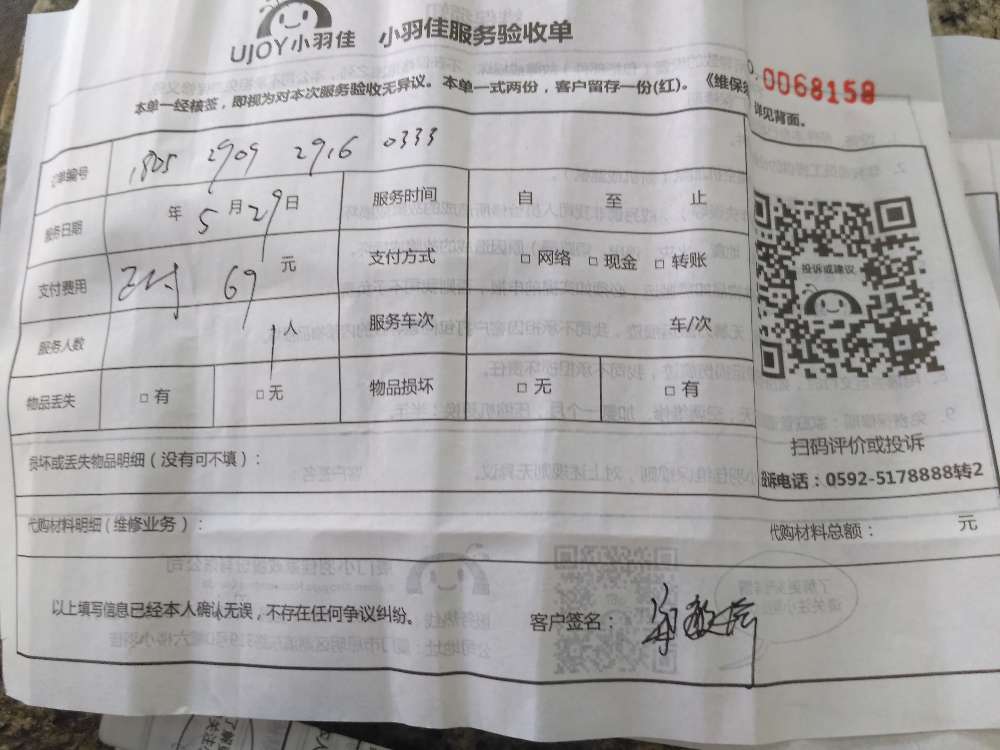 UJOY小羽佳 小羽佳服务验收单
0068158
本单一经核签，即视为对本次服务验收无异议。本单一式两份，客户留存一份(红)。《维保
详见背面。
单编号 1805 2909 2916 0333
服务日期 年 5 月 29 日 服务时间 自 至 止
支付费用 已付 69 元 支付方式 □ 网络 □ 现金 □ 转账
服务人数 1 人 服务车次 车/次
物品丢失 □ 有 □ 无 物品损坏 □ 无 □ 有
投诉或建议
扫码评价或投诉
诉电话：0592-5178888转2
损坏或丢失物品明细（没有可不填）：
代购材料明细（维修业务）： 代购材料总额： 元
以上填写信息已经本人确认无误，不存在任何争议纠纷。 客户签名：